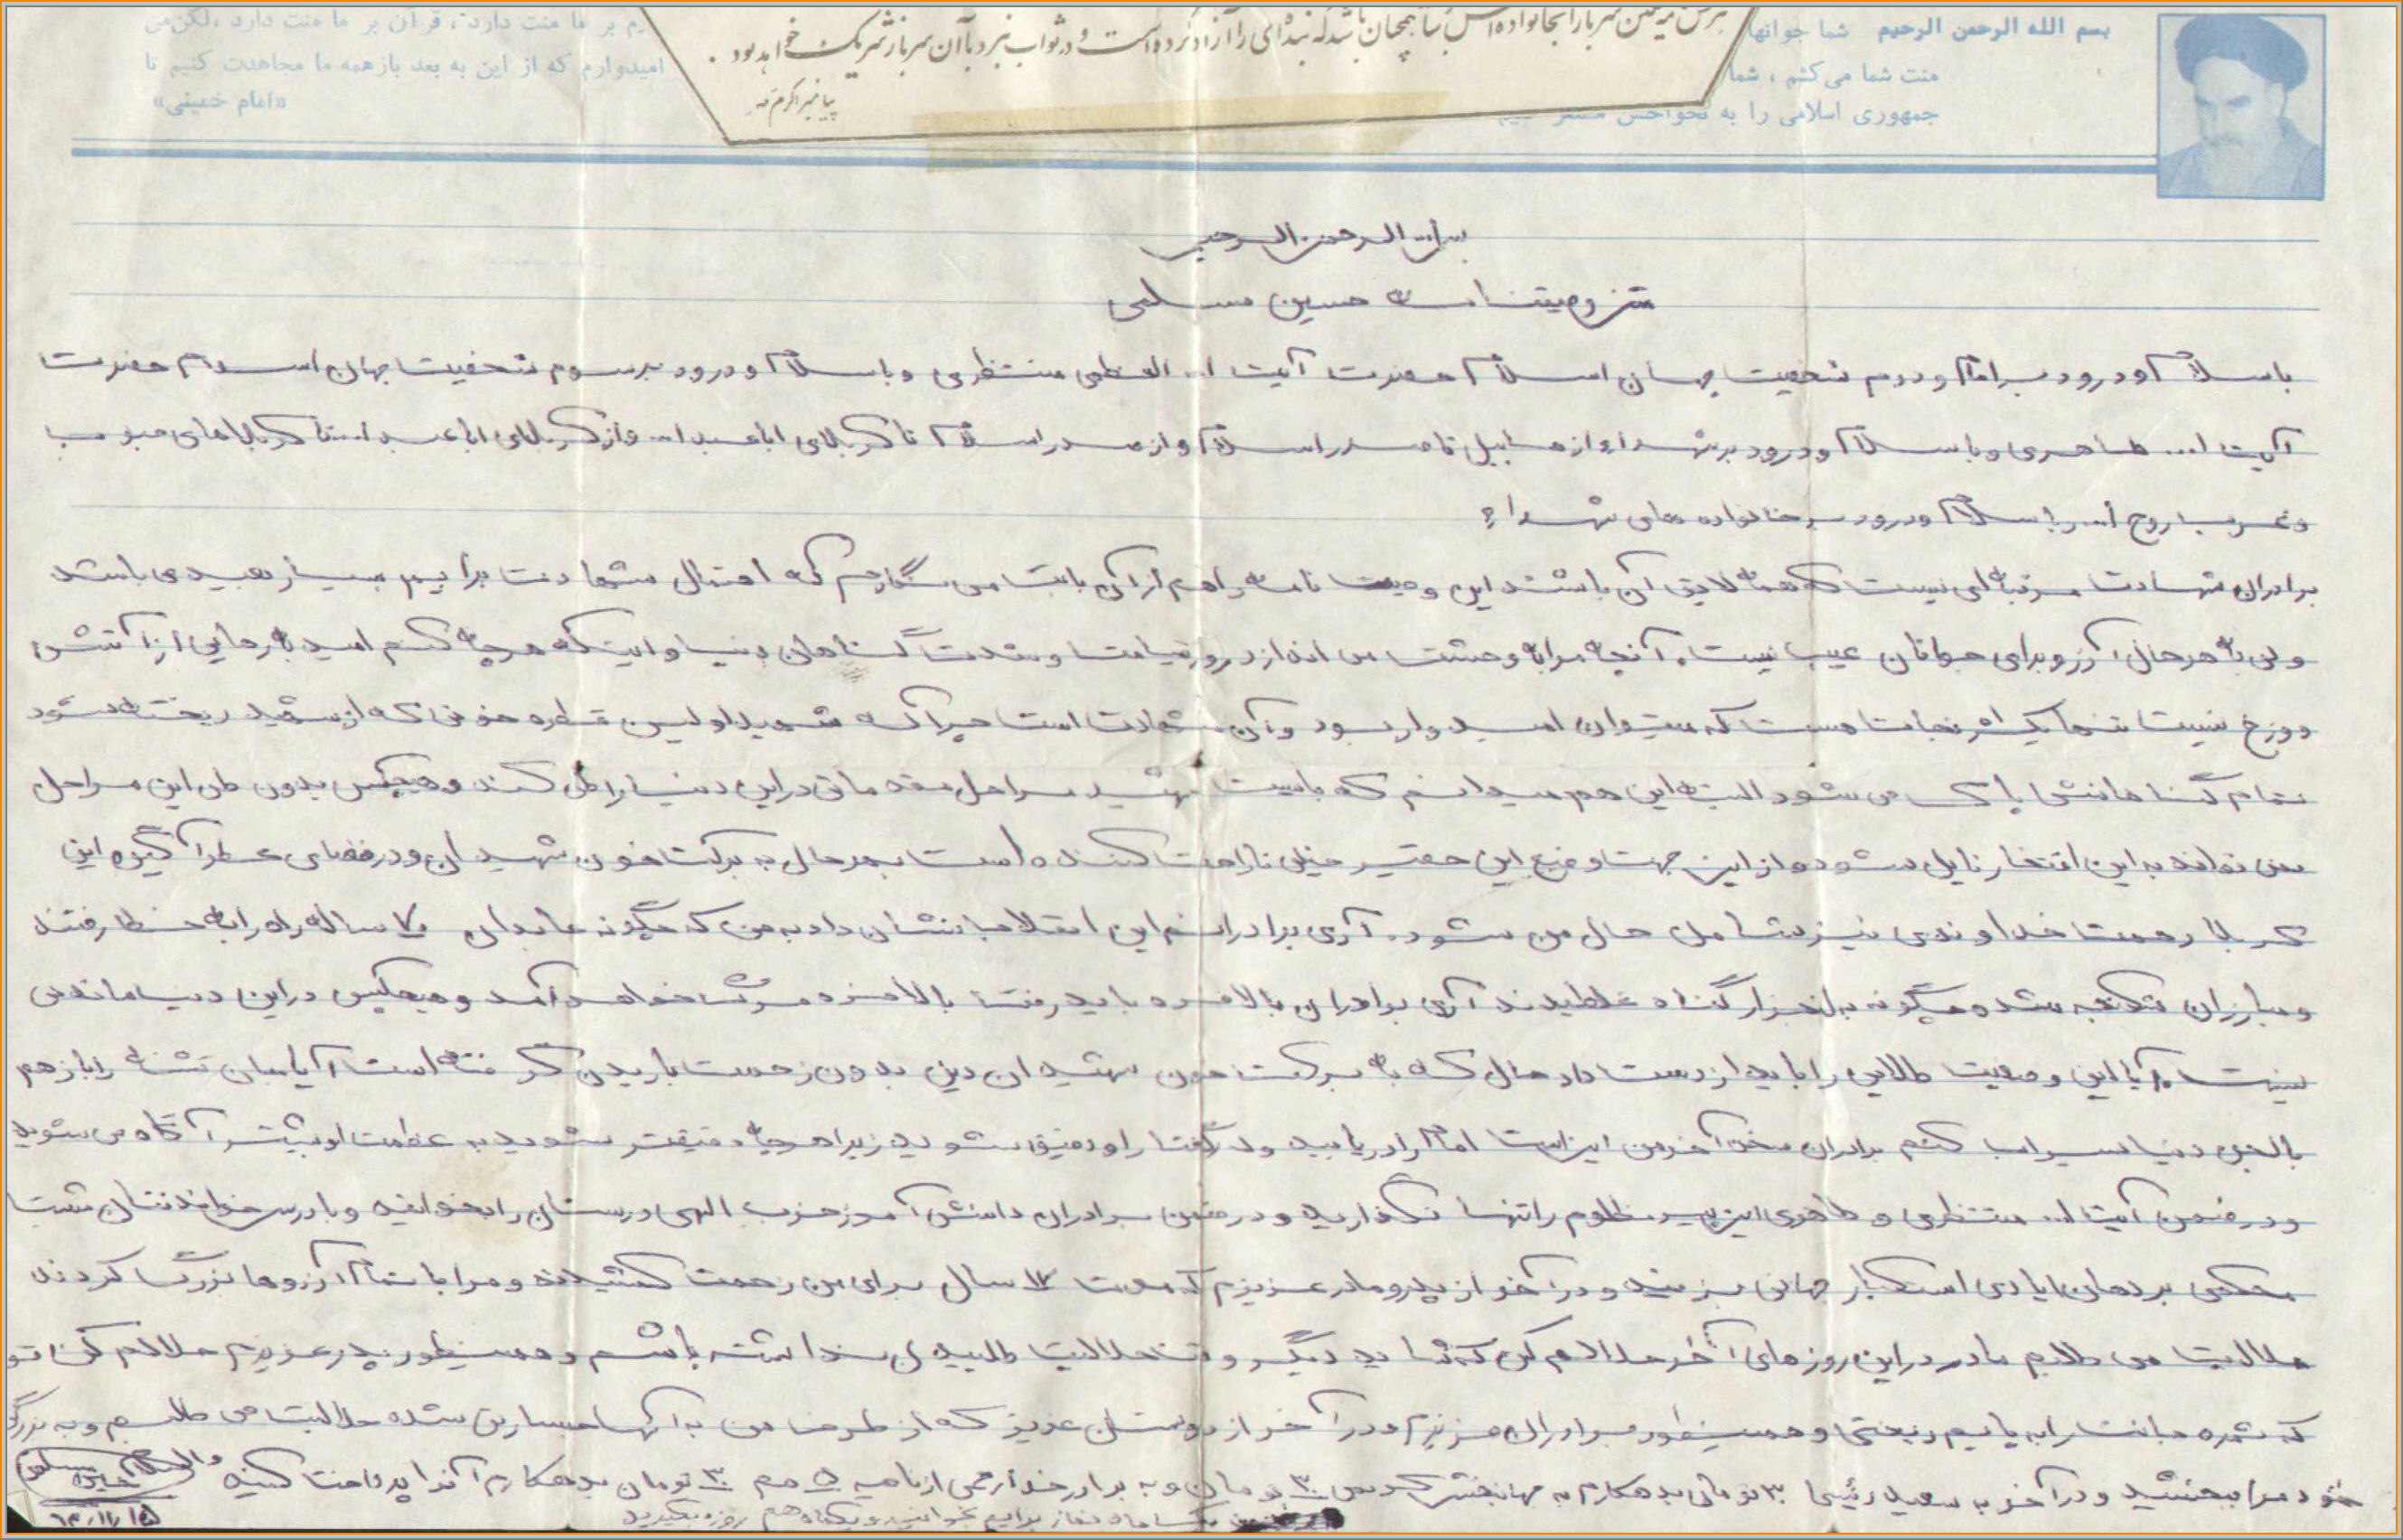 هرکس پیامی سربازرا بخانواده‌اش رساند همچنان باشد که بنده‌ای را آزاد کرده است و در ثواب نبرد با آن سرباز شریک خواهد بود.
پیامبر اکرم
بسم الله الرحمن الرحیم شما جوانها
منت شما می‌کشم ، شما
جمهوری اسلامی را به نحو احسن مستقر کنیم
بر ما منت دارد ، قرآن بر ما منت دارد ،لکن‌می
امیدوارم که از این به بعد بازهمه ما مجاهدت کنیم تا
«امام خمینی»
بسم الله الرحمن الرحیم
متن وصیتنامه حسین مسلمی
باسلام و درود بر امام و دوم شخصیت جهان اسلام حضرت آیت ا... العظمی منتظری و با سلام و درود بر سوم شخصیت جهان اسلام حضرت
آیت ا... طاهری و با سلام و درود بر شهدا از هابیل تا صدر اسلام و از صدر اسلام تا کربلای اباعبدا... و از کربلای اباعبدا... تا کربلاهای جنوب
و غرب با روح ا... و با سلام و درود به خانواده های شهدا
برادران شهادت مرتبه ای نیست که همه لایق آن باشند این وصیت نامه را هم از آن بابت می نگارم که احتمال شهادت برایم بسیار بعید می باشد
ولی به هر حال آرزو برای جوانان عیب نیست. آنچه مرا به وحشت می اندازد روز قیامت و شدت گناهان دنیا و اینکه هر چه کنم امید به رهایی از آتش
دوزخ نیست تنها یک راه نجات هست که میتوان امیدوار بود و آن شهادت است چرا که شهید اولین قطره خونی که از شهید ریخته شود
تمام گناهانش پاک می شود البته این هم میدانم که بایست شهید مراحل مقدماتی در این دنیا را طی کند و هیچکس بدون طی این مراحل
نمی تواند به این افتخار نایل شود و از این جهت وضع این حقیر خیلی ناراحت کننده است بهر حال به برکت خون شهیدان و در فضای عطرآگین این
کربلا رحمت خداوندی نیز شامل حال من شود. آری برادرانم این انقلاب نشان داد به من که چگونه عابدان ۷۰ ساله راه را به خطا رفتند
و مبارزان شکنجه شده چگونه به لجنزار گناه غلطیدند آری برادران بالاخره باید رفت بالاخره مرگ خواهد آمد و هیچکس در این دنیا ماندنی
نیست. آیا این وضعیت طلایی را باید از دست داد حال که به برکت خون شهیدان دین بدون زحمت باریدن گرفته است آیا جان تشنه را باز هم
با لجن دنیا سیراب کنم برادران سخن آخر من این است امام را دریابید و در گفتار او دقیق شوید زیرا هر چه دقیقتر شوید به عظمت او بیشتر آگاه می شوید
و در ضمن آیت ا... منتظری و طاهری این پیر مظلوم را تنها نگذارید و در ضمن برادران دانش آموز حزب الهی درستان را بخوانید و با درس خواندنتان مشت
محکمی بر دهان ایادی استکبار جهانی بزنید و در آخر از پدر و مادر عزیزم که مدت ۱۷ سال برای من زحمت کشیدند و مرا با تمام آرزوها بزرگ کردند
حلالیت می طلبم مادر در این روزهای آخر حلالم کن که شاید دیگر وقت حلالیت طلبیدن نداشته باشم و همینطور پدر عزیزم حلالم کن تو
که ثمره جانت را به پایم ریختی و همینطور برادران عزیزم و در آخر از دوستان عزیز که از طرف من به آنها جسارتی شده حلالیت می طلبم و به بزرگی
خود مرا ببخشید و در آخر به سعید رئیسی ۳۰ تومان بدهکارم به جهانبخش ۳۰ تومان و به برادر از ناحیه ۵ هم ۳۰ تومان بدهکارم آنرا پرداخت کنید والسلام
یک ماه نماز برایم بخوانید و یک ماه هم روزه بگیرید
حسین مسلمی